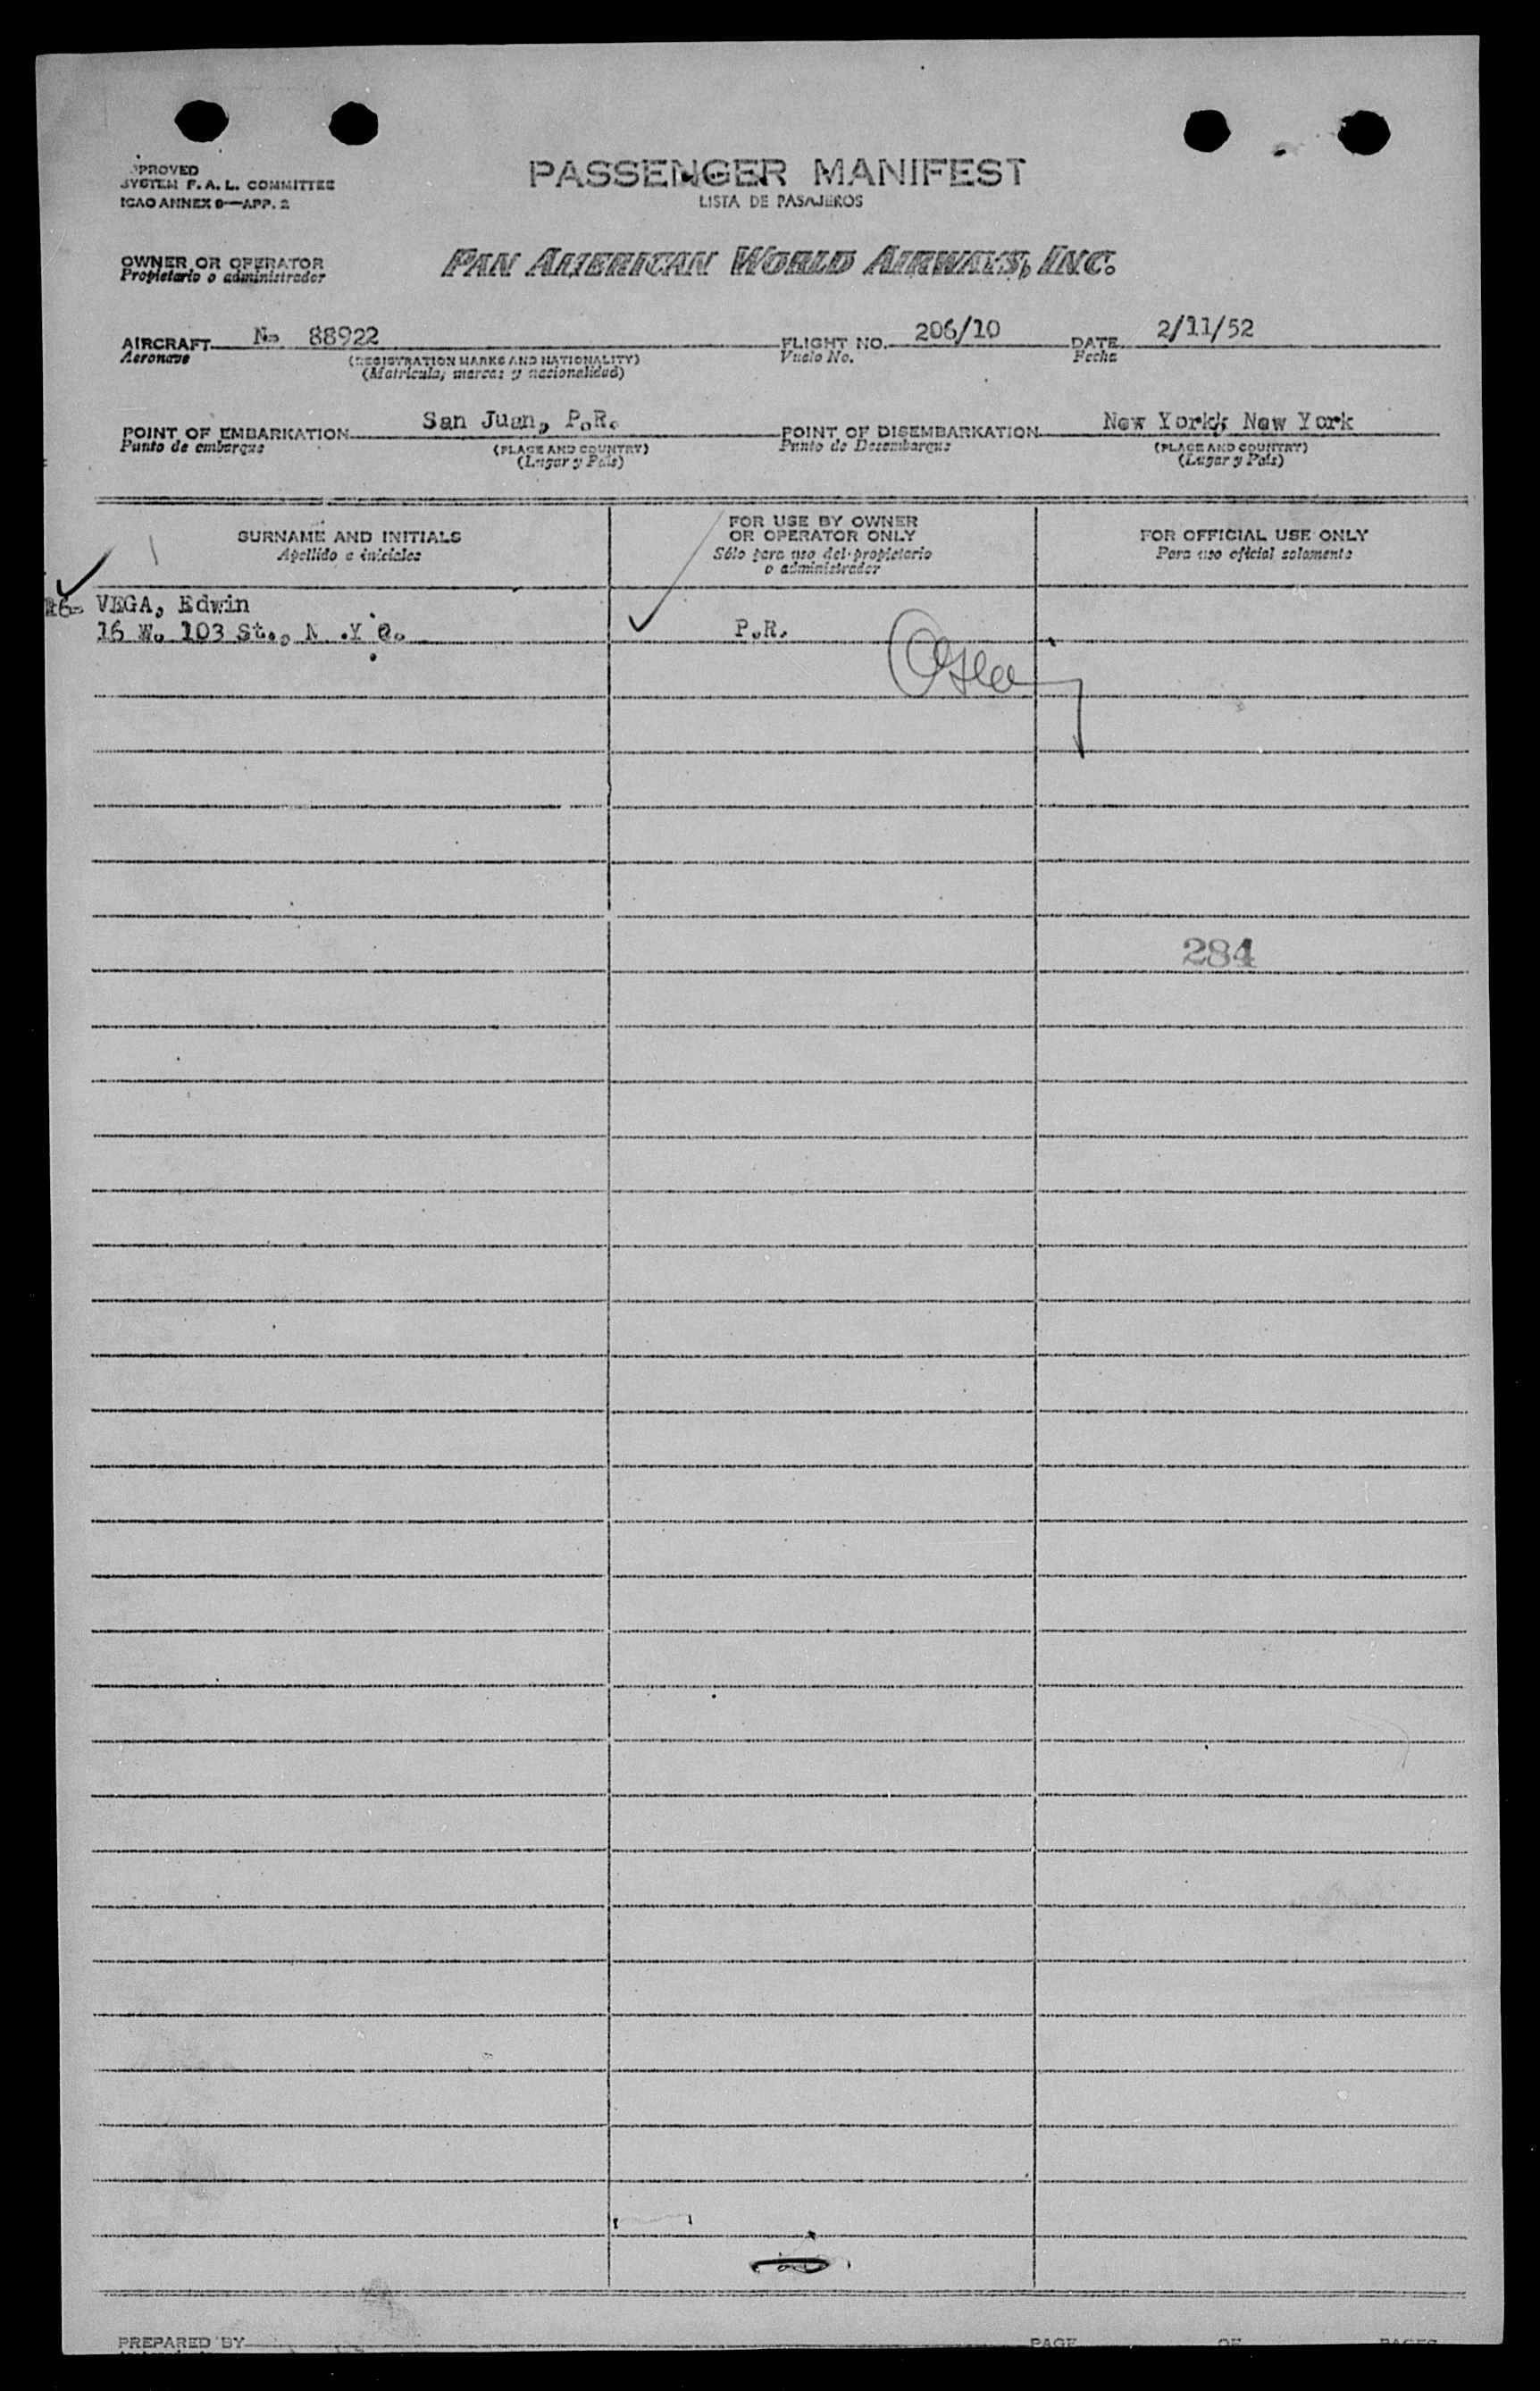 PPROVED
SYSTEM F. A. L. COMMITTEE
ICAO ANNEX 9—APP. 2
PASSENGER MANIFEST
LISTA DE PASAJEROS
OWNER OR OPERATOR
Propietario o administrador
PAN AMERICAN WORLD AIRWAYS, INC.
AIRCRAFT No 88922 FLIGHT NO. 206/10 DATE 2/11/52
Aeronave (REGISTRATION MARKS AND NATIONALITY) Vuelo No. Fecha
(Matricula, marcas y nacionalidad)
POINT OF EMBARKATION San Juan, P.R. POINT OF DISEMBARKATION New York, New York
Punto de embarque (PLACE AND COUNTRY) Punto de Desembarque (PLACE AND COUNTRY)
(Lugar y País) (Lugar y País)
SURNAME AND INITIALS
Apellido e iniciales
FOR USE BY OWNER
OR OPERATOR ONLY
Sólo para uso del propietario
o administrador
FOR OFFICIAL USE ONLY
Para uso oficial solamente
VEGA, Edwin
16 W. 103 St., N .Y C. P.R.
284
PREPARED BY PAGE OF PAGES